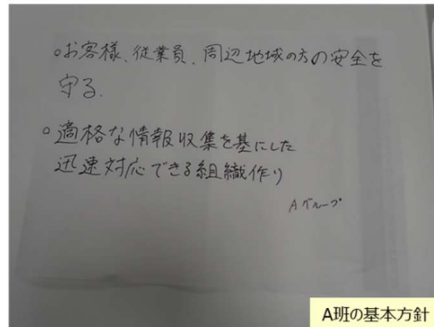 ○お客様、従業員、周辺地域の方の安全を
守る。
○適格な情報収集を基にした
迅速対応できる組織作り
Aグループ
A班の基本方針